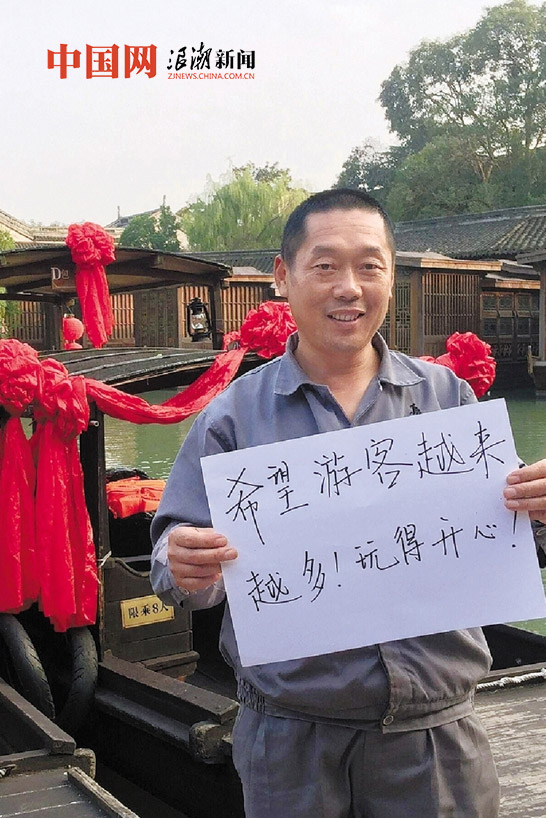 中国网 浪潮新闻
ZJNEWS.CHINA.COM.CN
希望游客越来
越多！玩得开心！
限乘8人